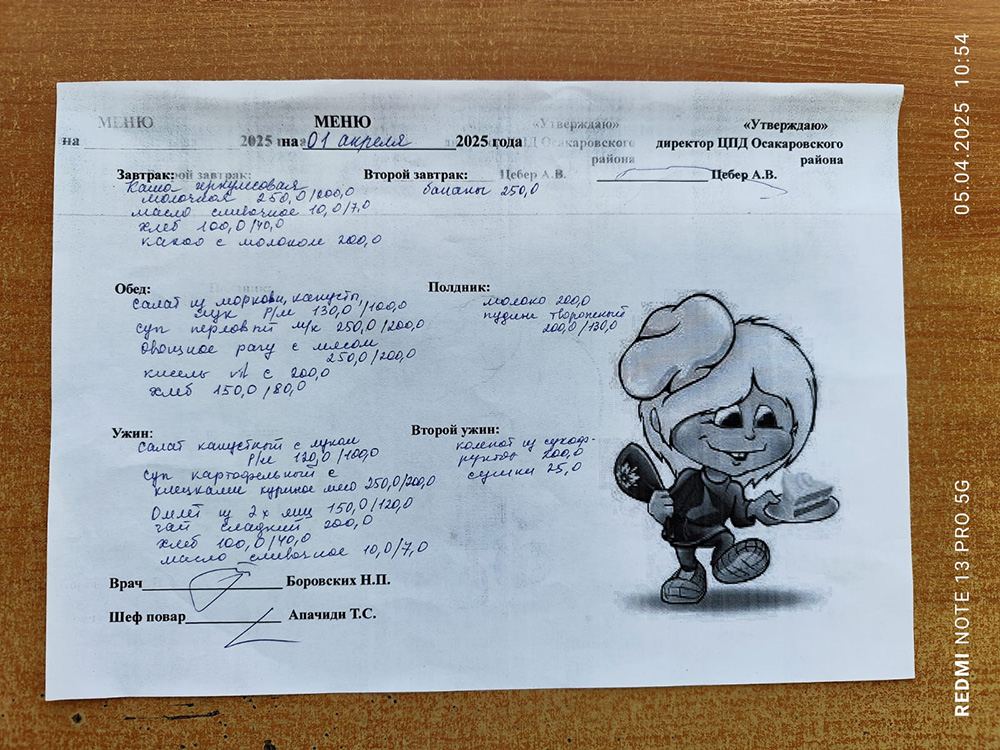 МЕНЮ
на 01 апреля 2025 года
«Утверждаю»
директор ЦПД Осакаровского
района
Цебер А.В.
Завтрак:
Каша геркулесовая
молочная 250,0/200,0
масло сливочное 10,0/7,0
хлеб 100,0/40,0
какао с молоком 200,0
Второй завтрак:
бананы 250,0
Обед:
Салат из моркови, капусты,
лук Р/м 130,0/100,0
суп перловый м/к 250,0/200,0
овощное рагу с мясом
250,0/200,0
кисель vit с 200,0
хлеб 150,0/80,0
Полдник:
молоко 200,0
пудинг творожный
200,0/130,0
Ужин:
Салат капустный с луком
Р/м 120,0/100,0
суп картофельный с
клецками куриное мясо 250,0/200,0
Омлет из 2х яиц 150,0/120,0
чай сладкий 200,0
хлеб 100,0/40,0
масло сливочное 10,0/7,0
Второй ужин:
компот из сухоф-
руктов 200,0
сушки 25,0
Врач Боровских Н.П.
Шеф повар Апачиди Т.С.
05.04.2025 10:54
REDMI NOTE 13 PRO 5G